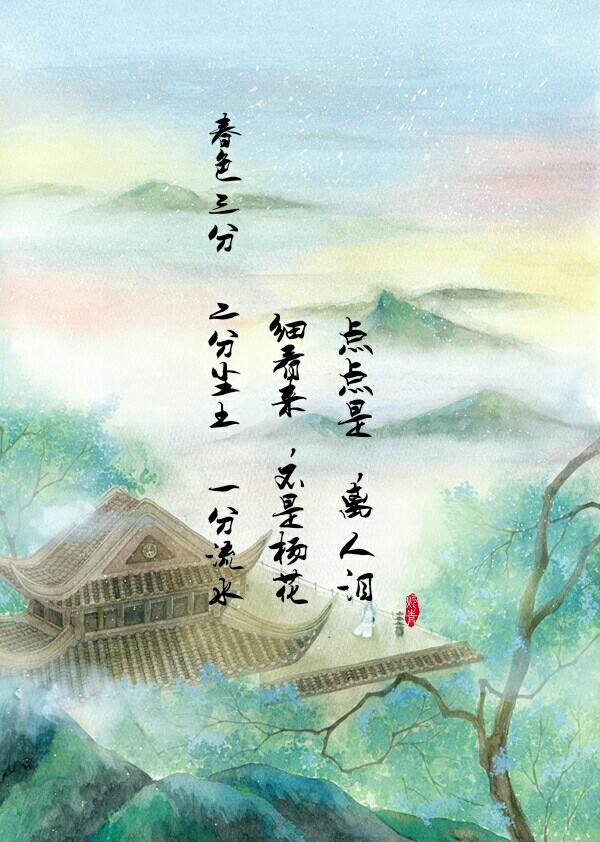 春色三分 二分尘土 一分流水
细看来，不是杨花
点点是，离人泪